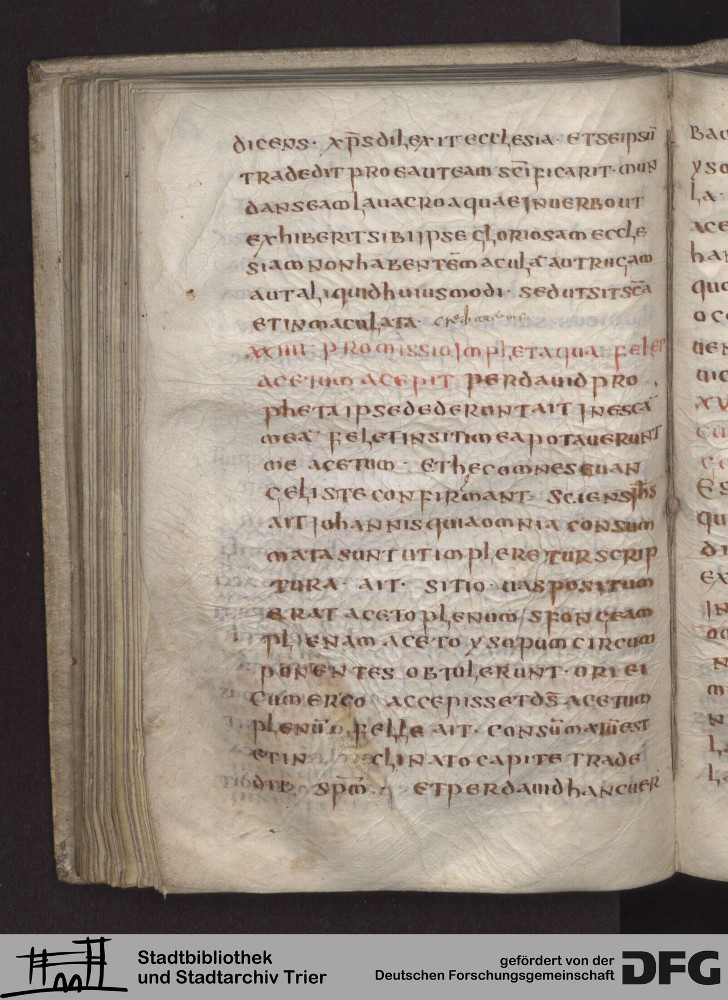 dicens · xp̄s dilexit ecclesia · et seipsū
tradedit pro ea uteam sc̄ificarit · mun
dans eam lauacro aquae in uerbo ut
exhiberit sibi ipse gloriosam eccle
siam non habentem̄ macula aut rugam
aut aliquid huiusmodi · sed ut sit sc̄a
et inmaculata ·
xxiiii · promissio impleta qua feler
acetum acepit per dauid pro
pheta ipse dederont ait in escā
meā fel et in siti mea potauerunt
me acetum · et hec omnes euan
geliste confirmant · sciens ih̄s
ait iohannis quia omnia consum
mata sunt ut impleretur scrip
tura · ait · sitio · uas positum
erat aceto plenum sfongeam
plienam aceto ysopum circum
ponentes obtulerunt · ori ei
cum ergo accepisset dō̄s acetum
plenū felle ait · consūmatū est
et in clinato capite trade
dit · sp̄m · et per dauid hanc uer
bac
yso
la ·
ace
han
quo
oco
uen
uic
xv
Es
qui
di
ex
in
n
m
n
Stadtbibliothek
und Stadtarchiv Trier
gefördert von der
Deutschen Forschungsgemeinschaft
DFG